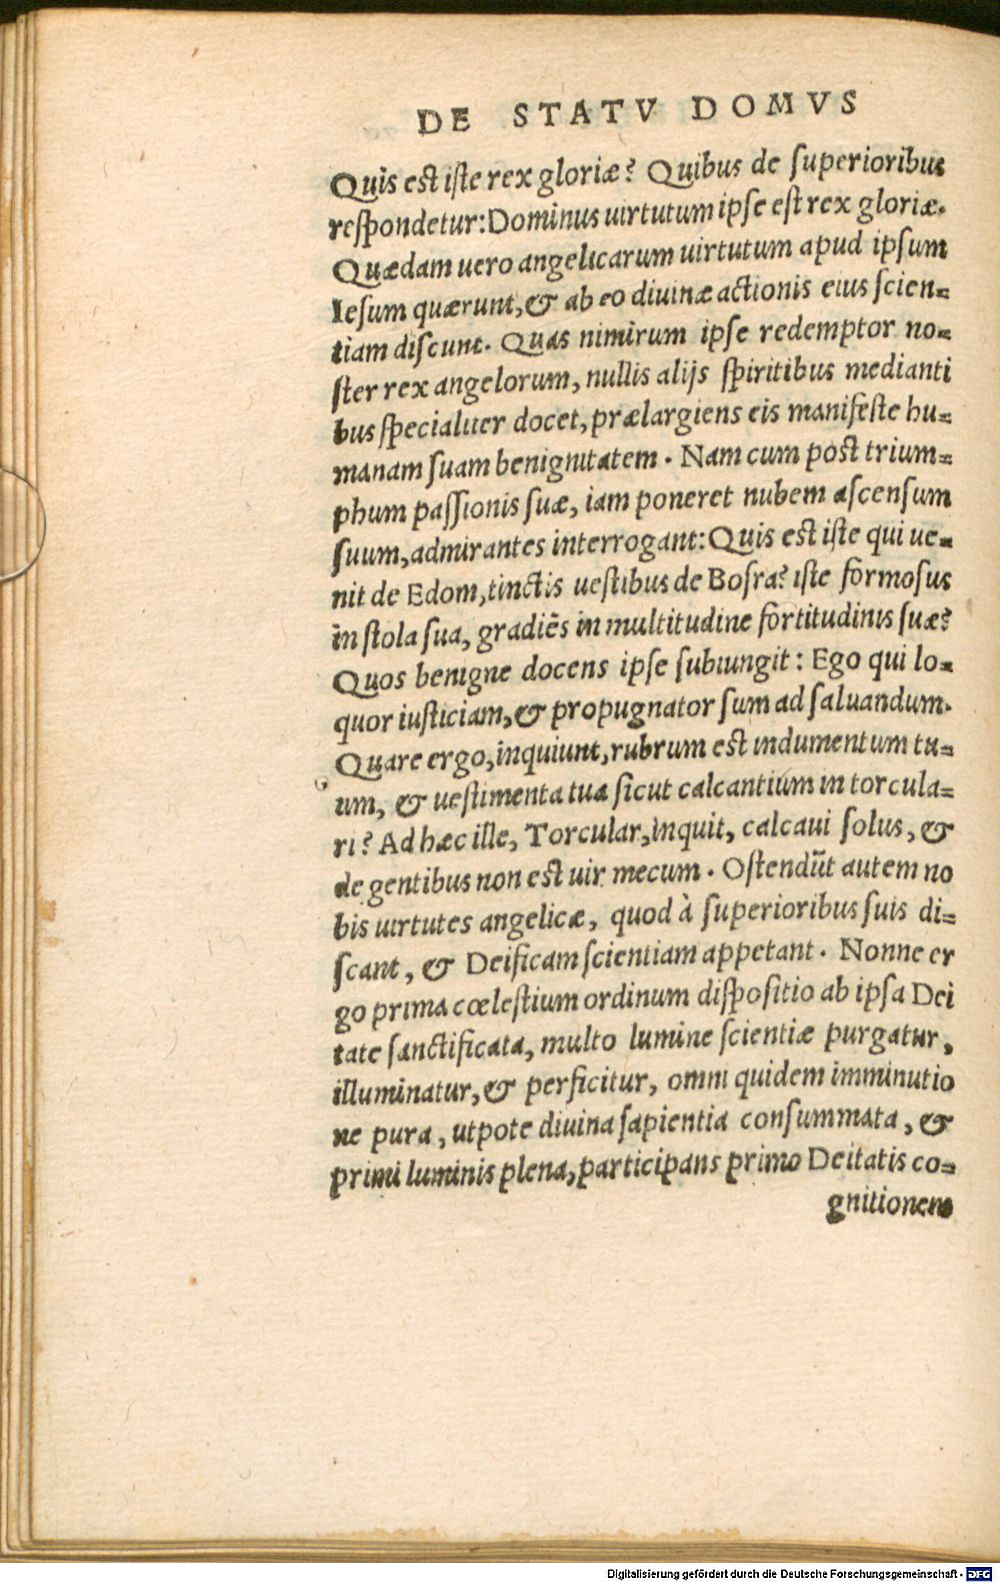 DE STATV DOMVS
Quis est iste rex gloriæ? Quibus de superioribus
respondetur: Dominus uirtutum ipse est rex gloriæ.
Quædam uero angelicarum uirtutum apud ipsum
Iesum quærunt, & ab eo diuinæ actionis eius scien=
tiam discunt. Quas nimirum ipse redemptor no=
ster rex angelorum, nullis alijs spiritibus medianti
bus specialiter docet, prælargiens eis manifeste hu=
manam suam benignitatem. Nam cum post trium=
phum passionis suæ, iam poneret nubem ascensum
suum, admirantes interrogant: Quis est iste qui ue=
nit de Edom, tinctis uestibus de Bosra? iste formosus
in stola sua, gradiẽs in multitudine fortitudinis suæ?
Quos benigne docens ipse subiungit: Ego qui lo=
quor iusticiam, & propugnator sum ad saluandum.
Quare ergo, inquiunt, rubrum est indumentum tu=
um, & uestimenta tua sicut calcantium in torcula=
ri? Ad hæc ille, Torcular, inquit, calcaui solus, &
de gentibus non est uir mecum. Ostendũt autem no
bis uirtutes angelicæ, quod à superioribus suis di=
scant, & Deificam scientiam appetant. Nonne er
go prima cœlestium ordinum dispositio ab ipsa Dei
tate sanctificata, multo lumine scientiæ purgatur,
illuminatur, & perficitur, omni quidem imminutio
ne pura, utpote diuina sapientia consummata, &
primi luminis plena, participans primo Deitatis co=
gnitionem
Digitalisierung gefördert durch die Deutsche Forschungsgemeinschaft - DFG